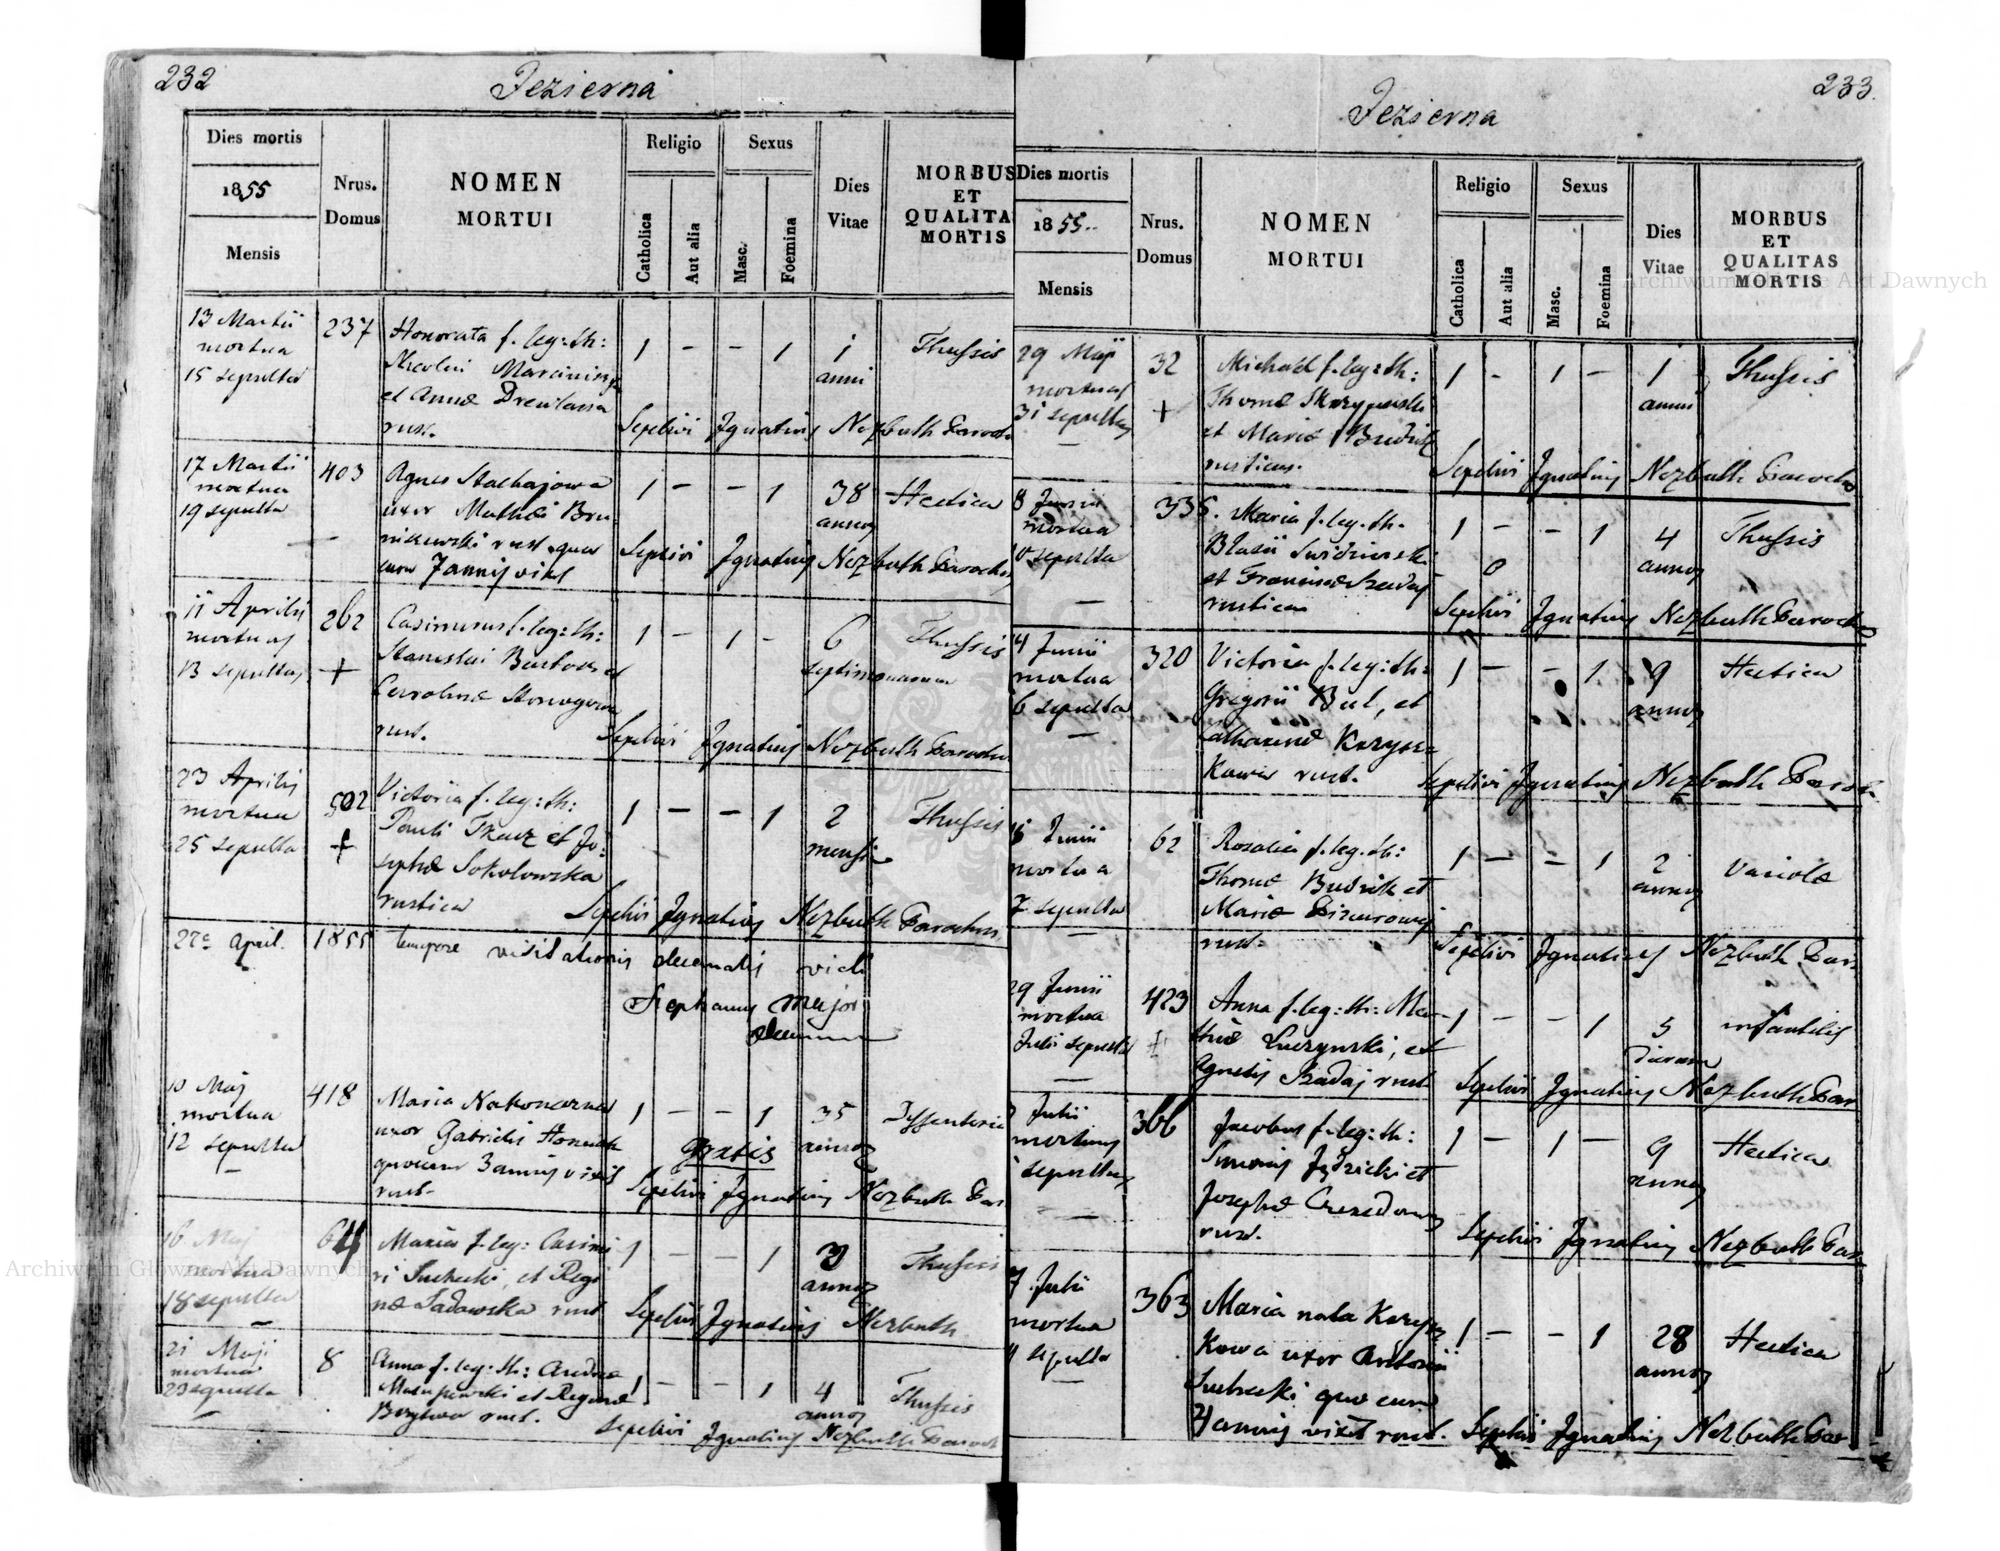 232
Jezierna
Dies mortis
1855
Mensis
Nrus.
Domus
NOMEN
MORTUI
Religio
Catholica
Aut alia
Sexus
Masc.
Foemina
Dies
Vitae
MORBUS
ET
QUALITA
MORTIS
13 Martii
mortua
15 sepulta
237
Honorata f. leg: th:
et Annæ
rust.
1 - - 1
1
anni
Thussis
Sepelivi Ignatius Nezbuth Paroch
17 Martii
mortua
19 sepulta
403
Agnes Stachajowa
uxor Mathæi Bru
nikowski rust. qua
cum 7 annis vixit
1 - - 1
38
annor
Hectica
Sepelivi Ignatius Nezbuth Parochus
11 Aprilis
mortuus
13 sepultus
262
+
Casimirus f. leg: th:
Stanislai et
Carolinæ
rust.
1 - 1 -
6
septimanarum
Thussis
Sepelivi Ignatius Nezbuth Parochus
23 Aprilis
mortua
25 sepulta
502
+
Victoria f. leg: th:
Pauli Tkacz et Jo:
sephæ Sokolowska
rustica
1 - - 1
2
mensi
Thussis
Sepelivi Ignatius Nezbuth Parochus
27 April. 1855 tempore visitationis decanalis vidi
Stephanus Major
10 Maj
mortua
12 sepulta
418
Maria
uxor Gabrielis
quocum 3 annis vixit
rust.
1 - - 1
gratis
35
annor
Dyssenteria
Sepelivi Ignatius Nezbuth Par
16 Maj
mortua
18 sepulta
64
Maria f. leg: Casimi
ri Suchecki, et Regi
næ Sadowska rust
1 - - 1
3
annor
Thussis
Sepelivi Ignatius Nezbuth
21 Maji
mortua
23 sepulta
8
Anna f. leg: th: Andreæ
et Reginæ
rust.
1 - - 1
4
annor
Thussis
Sepelivi Ignatius Nezbuth Paroch
233.
Jezierna
Dies mortis
1855..
Mensis
Nrus.
Domus
NOMEN
MORTUI
Religio
Catholica
Aut alia
Sexus
Masc.
Foemina
Dies
Vitae
MORBUS
ET
QUALITAS
MORTIS
29 Maji
mortuus
31 sepultus
32
+
Michael f. leg: th:
Thomæ
et Mariæ Budnik
rusticus.
1 - 1 -
1
anni
Thussis
Sepelivi Ignatius Nezbuth Parochus
8 Junii
mortua
10 sepulta
335.
Maria f. leg. th.
Blasii
et Franciscæ Badaj
rustica
1 - - 1
4
annor
Thussis
Sepelivi Ignatius Nezbuth Parochus
4 Junii
mortua
6 sepulta
320
Victoria f. leg: th:
Gregorii But, et
Catharinæ Krzysz=
kowa rust.
1 - - 1
9
annor
Hectica
Sepelivi Ignatius Nezbuth Paroch
Junii
mortua
7 sepulta
62
Rosalia f. leg. th:
Thomæ Budnik et
Mariæ
rust.
1 - - 1
2
annor
Variolæ
Sepelivi Ignatius Nezbuth Par
29 Junii
mortua
Julii sepulta
423
+
Anna f. leg: th: Ma-
thiæ Luczynski, et
Agnetis Badaj rust
1 - - 1
5
dierum
infantilis
Sepelivi Ignatius Nezbuth Par
Julii
mortuus
sepultus
366
Jacobus f. leg: th:
Simonis et
Josephæ
rust.
1 - 1 -
9
annor
Hectica
Sepelivi Ignatius Nezbuth Par
7 Julii
mortua
sepulta
363
Maria nata Krzysz
kowa uxor Antonii
Suchecki quo cum
7 annis vixit rust.
1 - - 1
28
annor
Hectica
Sepelivi Ignatius Nezbuth Par
Archiwum Główne Akt Dawnych
Archiwum Główne Akt Dawnych